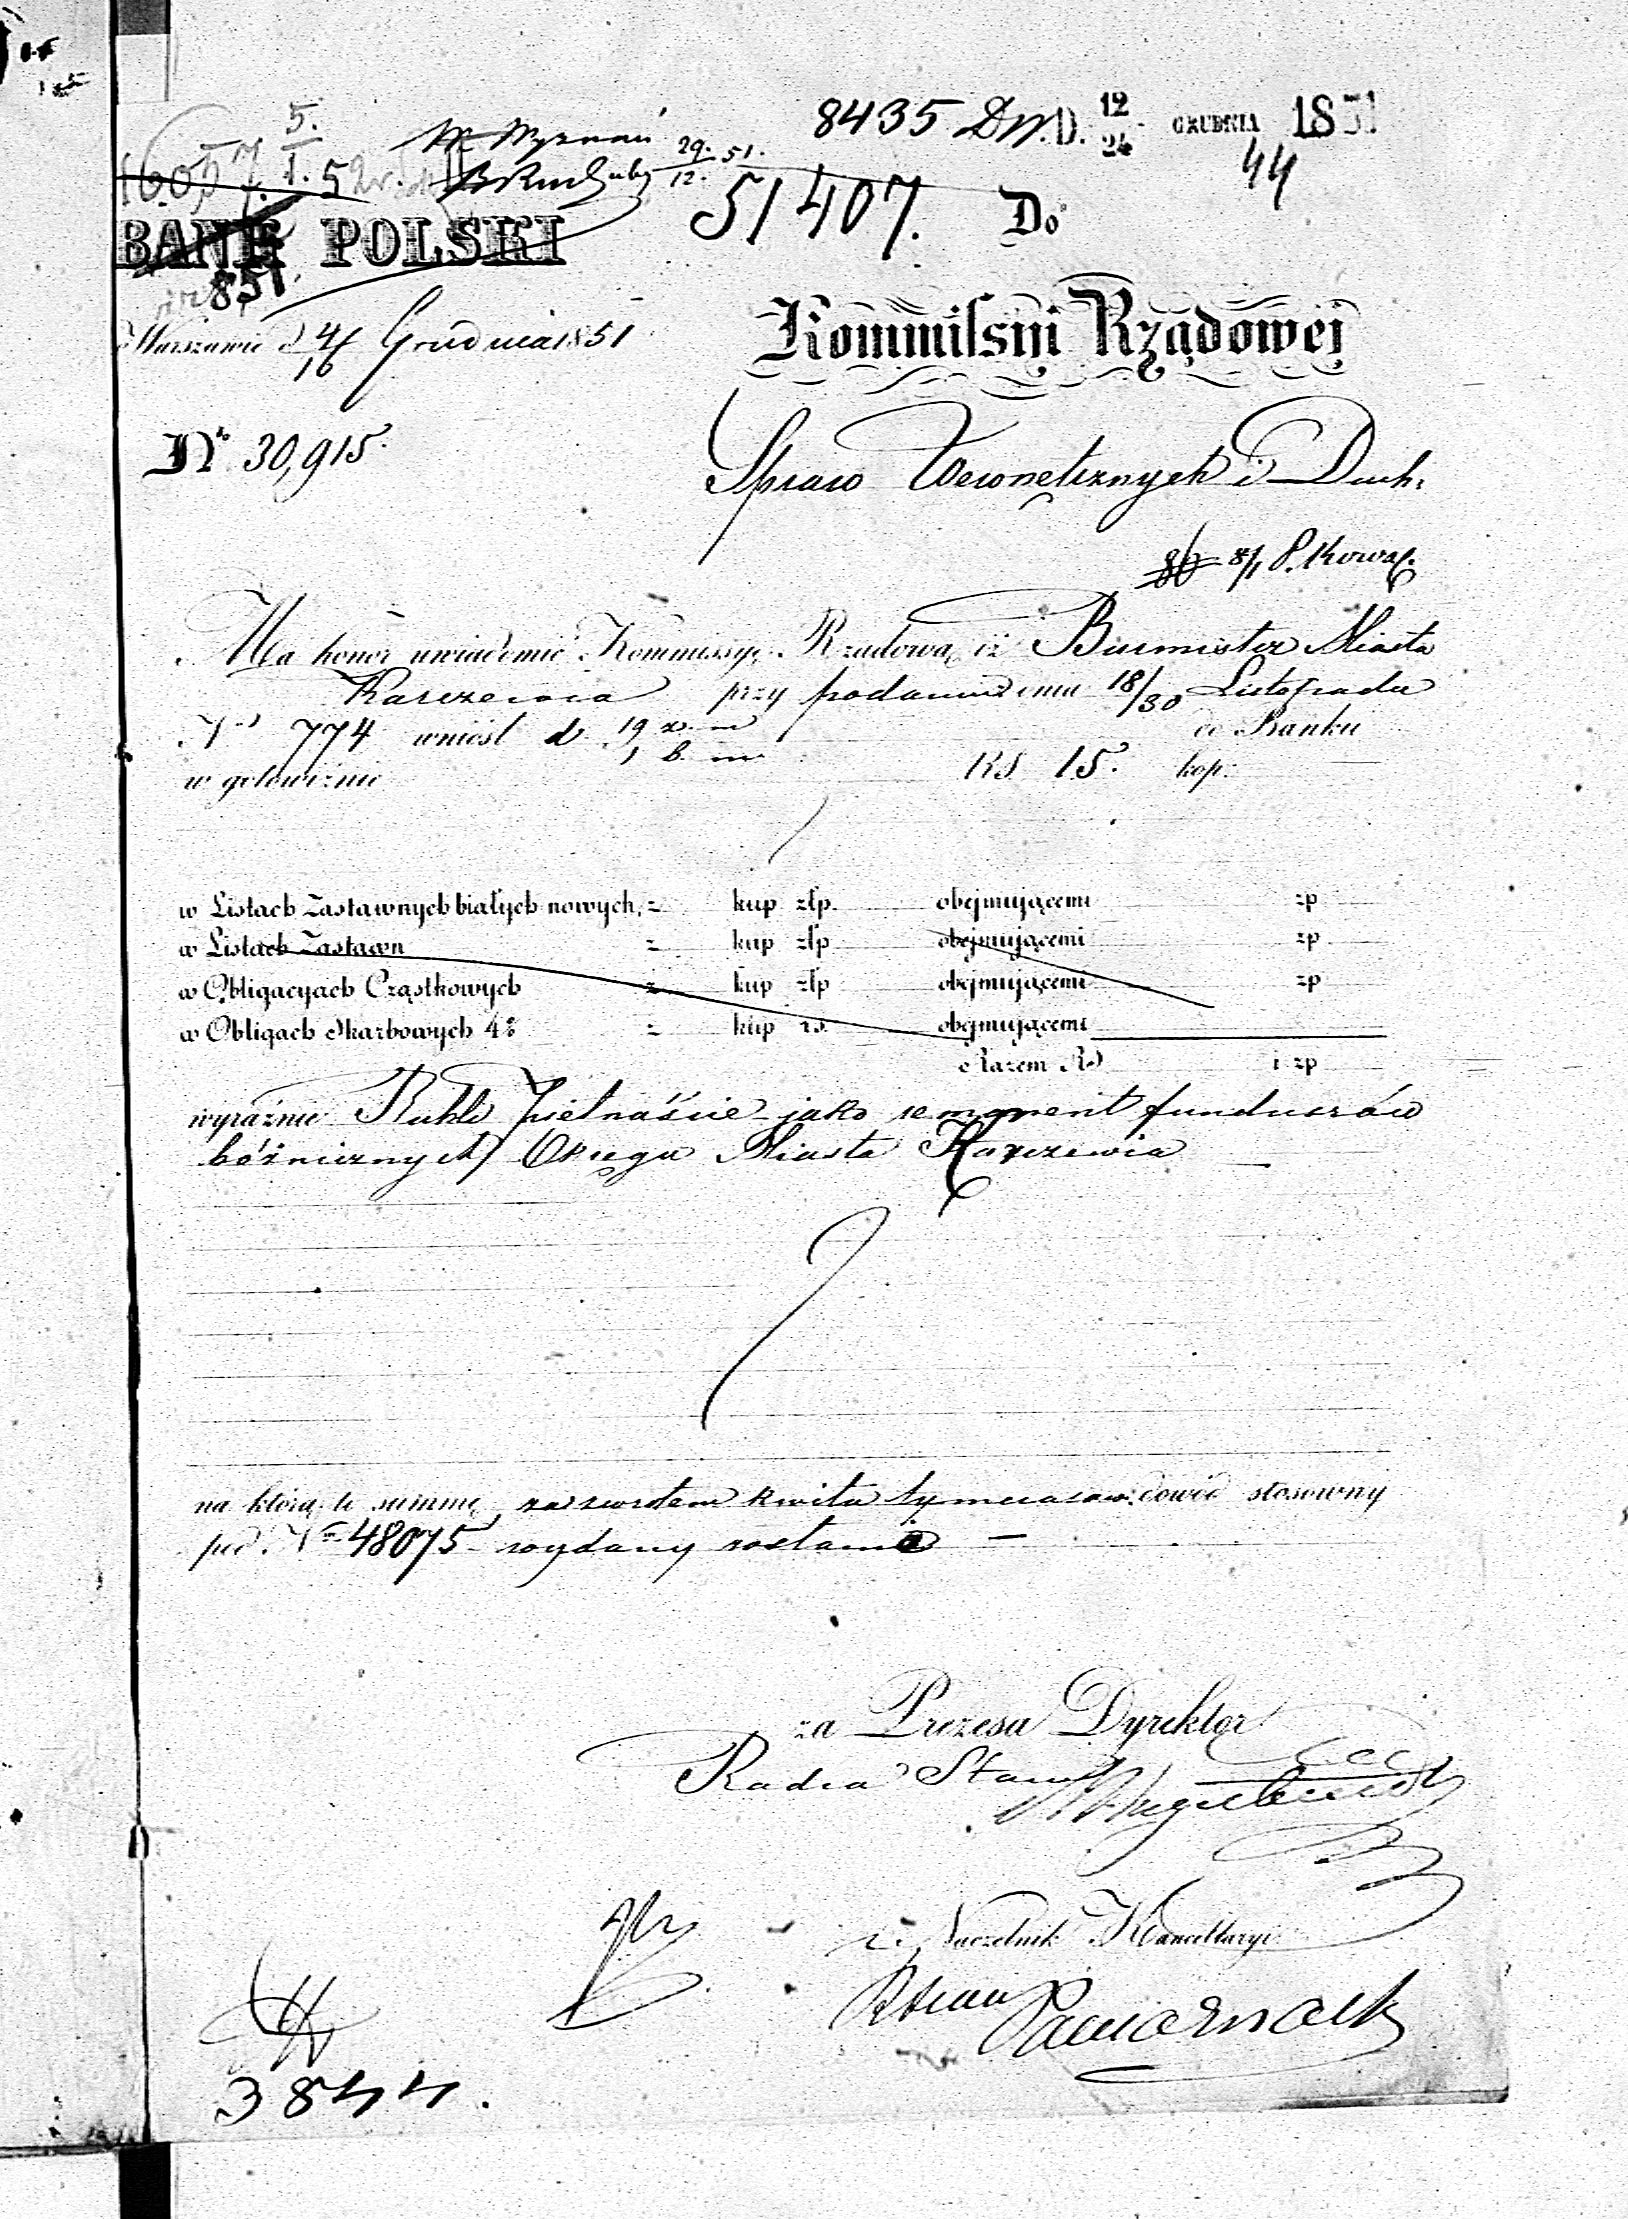 8435 D.W.D. 12/24 GRUDNIA 1851
44
W. Wyznań
29/12 51.
51407.
BANK POLSKI
851
Do
Kommissyi Rządowej
w Warszawie d 4/16 Grudnia 1851
No 30,915.
Spraw Wewnętrznych i Duch.
8/1 P. Kowal.
Ma honor uwiadomić Kommissyę Rządową iż Burmistrz Miasta
Karczewia przy podaniu z dnia 18/30 Listopada
No 774 wniósł d. 19 z. m / 1 b. m do Banku
w gotowiźnie RS 15. kop:
w Listach Zastawnych białych nowych, z kup złp. obejmującemi zp
w Listach Zastawn z kup złp obejmującemi zp
w Obligacyach Cząstkowych z kup złp obejmującemi zp
w Obligach Skarbowych 4% z kup rs. obejmującemi
Razem RS i zp
wyraźnie Rubli piętnaście jako remanent funduszów
bóżnicznych Okręgu Miasta Karczewia
na którą to summę za zwrotem kwitu tymczasow. dowód stosowny
pod No 48075 wydany został
za Prezesa Dyrektor
Radca Stanu
Naczelnik Kancellaryi
3844.